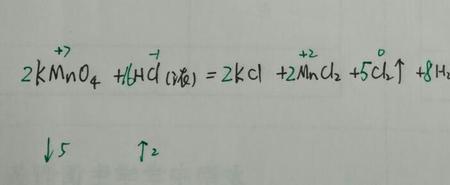 +7 -1 +2 0
2KMnO₄ +16HCl(浓) = 2KCl +2MnCl₂ +5Cl₂↑ +8H₂
↓5 ↑2